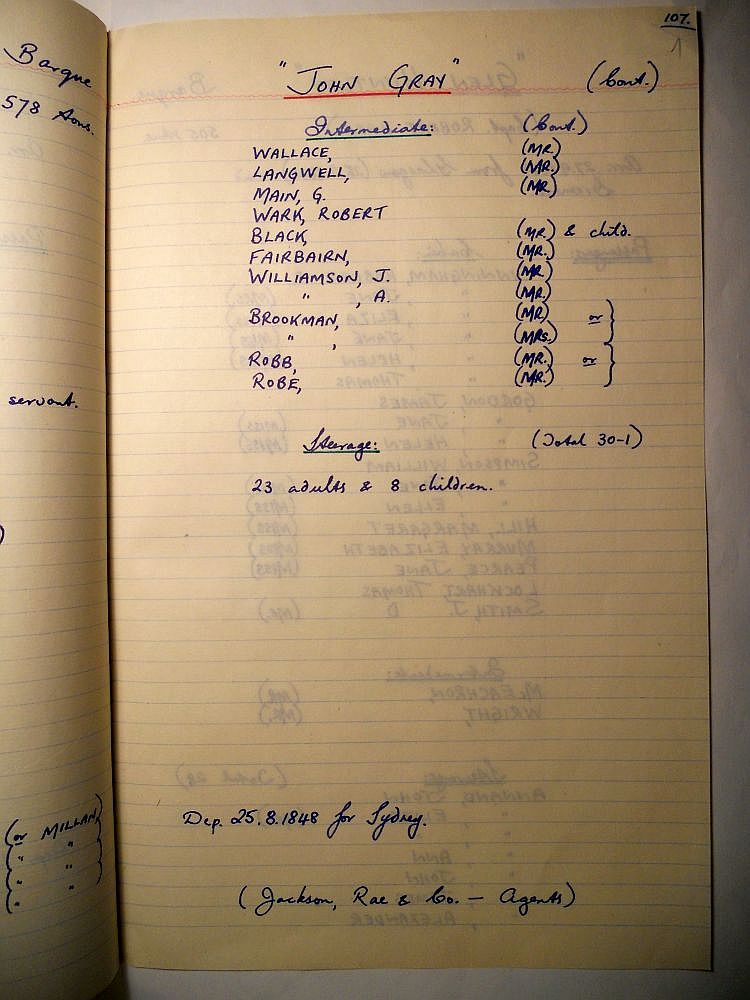 Barque
578 tons.
servant.
(or MILLAN)
" "
" "
" "
107.
"JOHN GRAY" (Cont.)
Intermediate: (Cont.)
WALLACE, (MR.)
LANGWELL, (MR.)
MAIN, G. (MR.)
WARK, ROBERT
BLACK, (MR.) & child.
FAIRBAIRN, (MR.)
WILLIAMSON, J. (MR.)
" , A. (MR.)
BROOKMAN, (MR.) or
" , (MRS.)
ROBB, (MR.) or
ROBE, (MR.)
Steerage: (Total 30-1)
23 adults & 8 children.
Dep. 25.8.1848 for Sydney.
(Jackson, Rae & Co. — Agents)